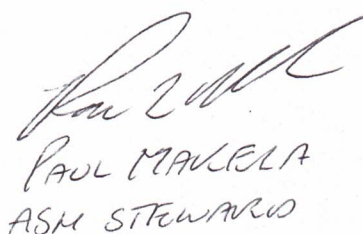 PAUL MAKELA
ASM STEWARD